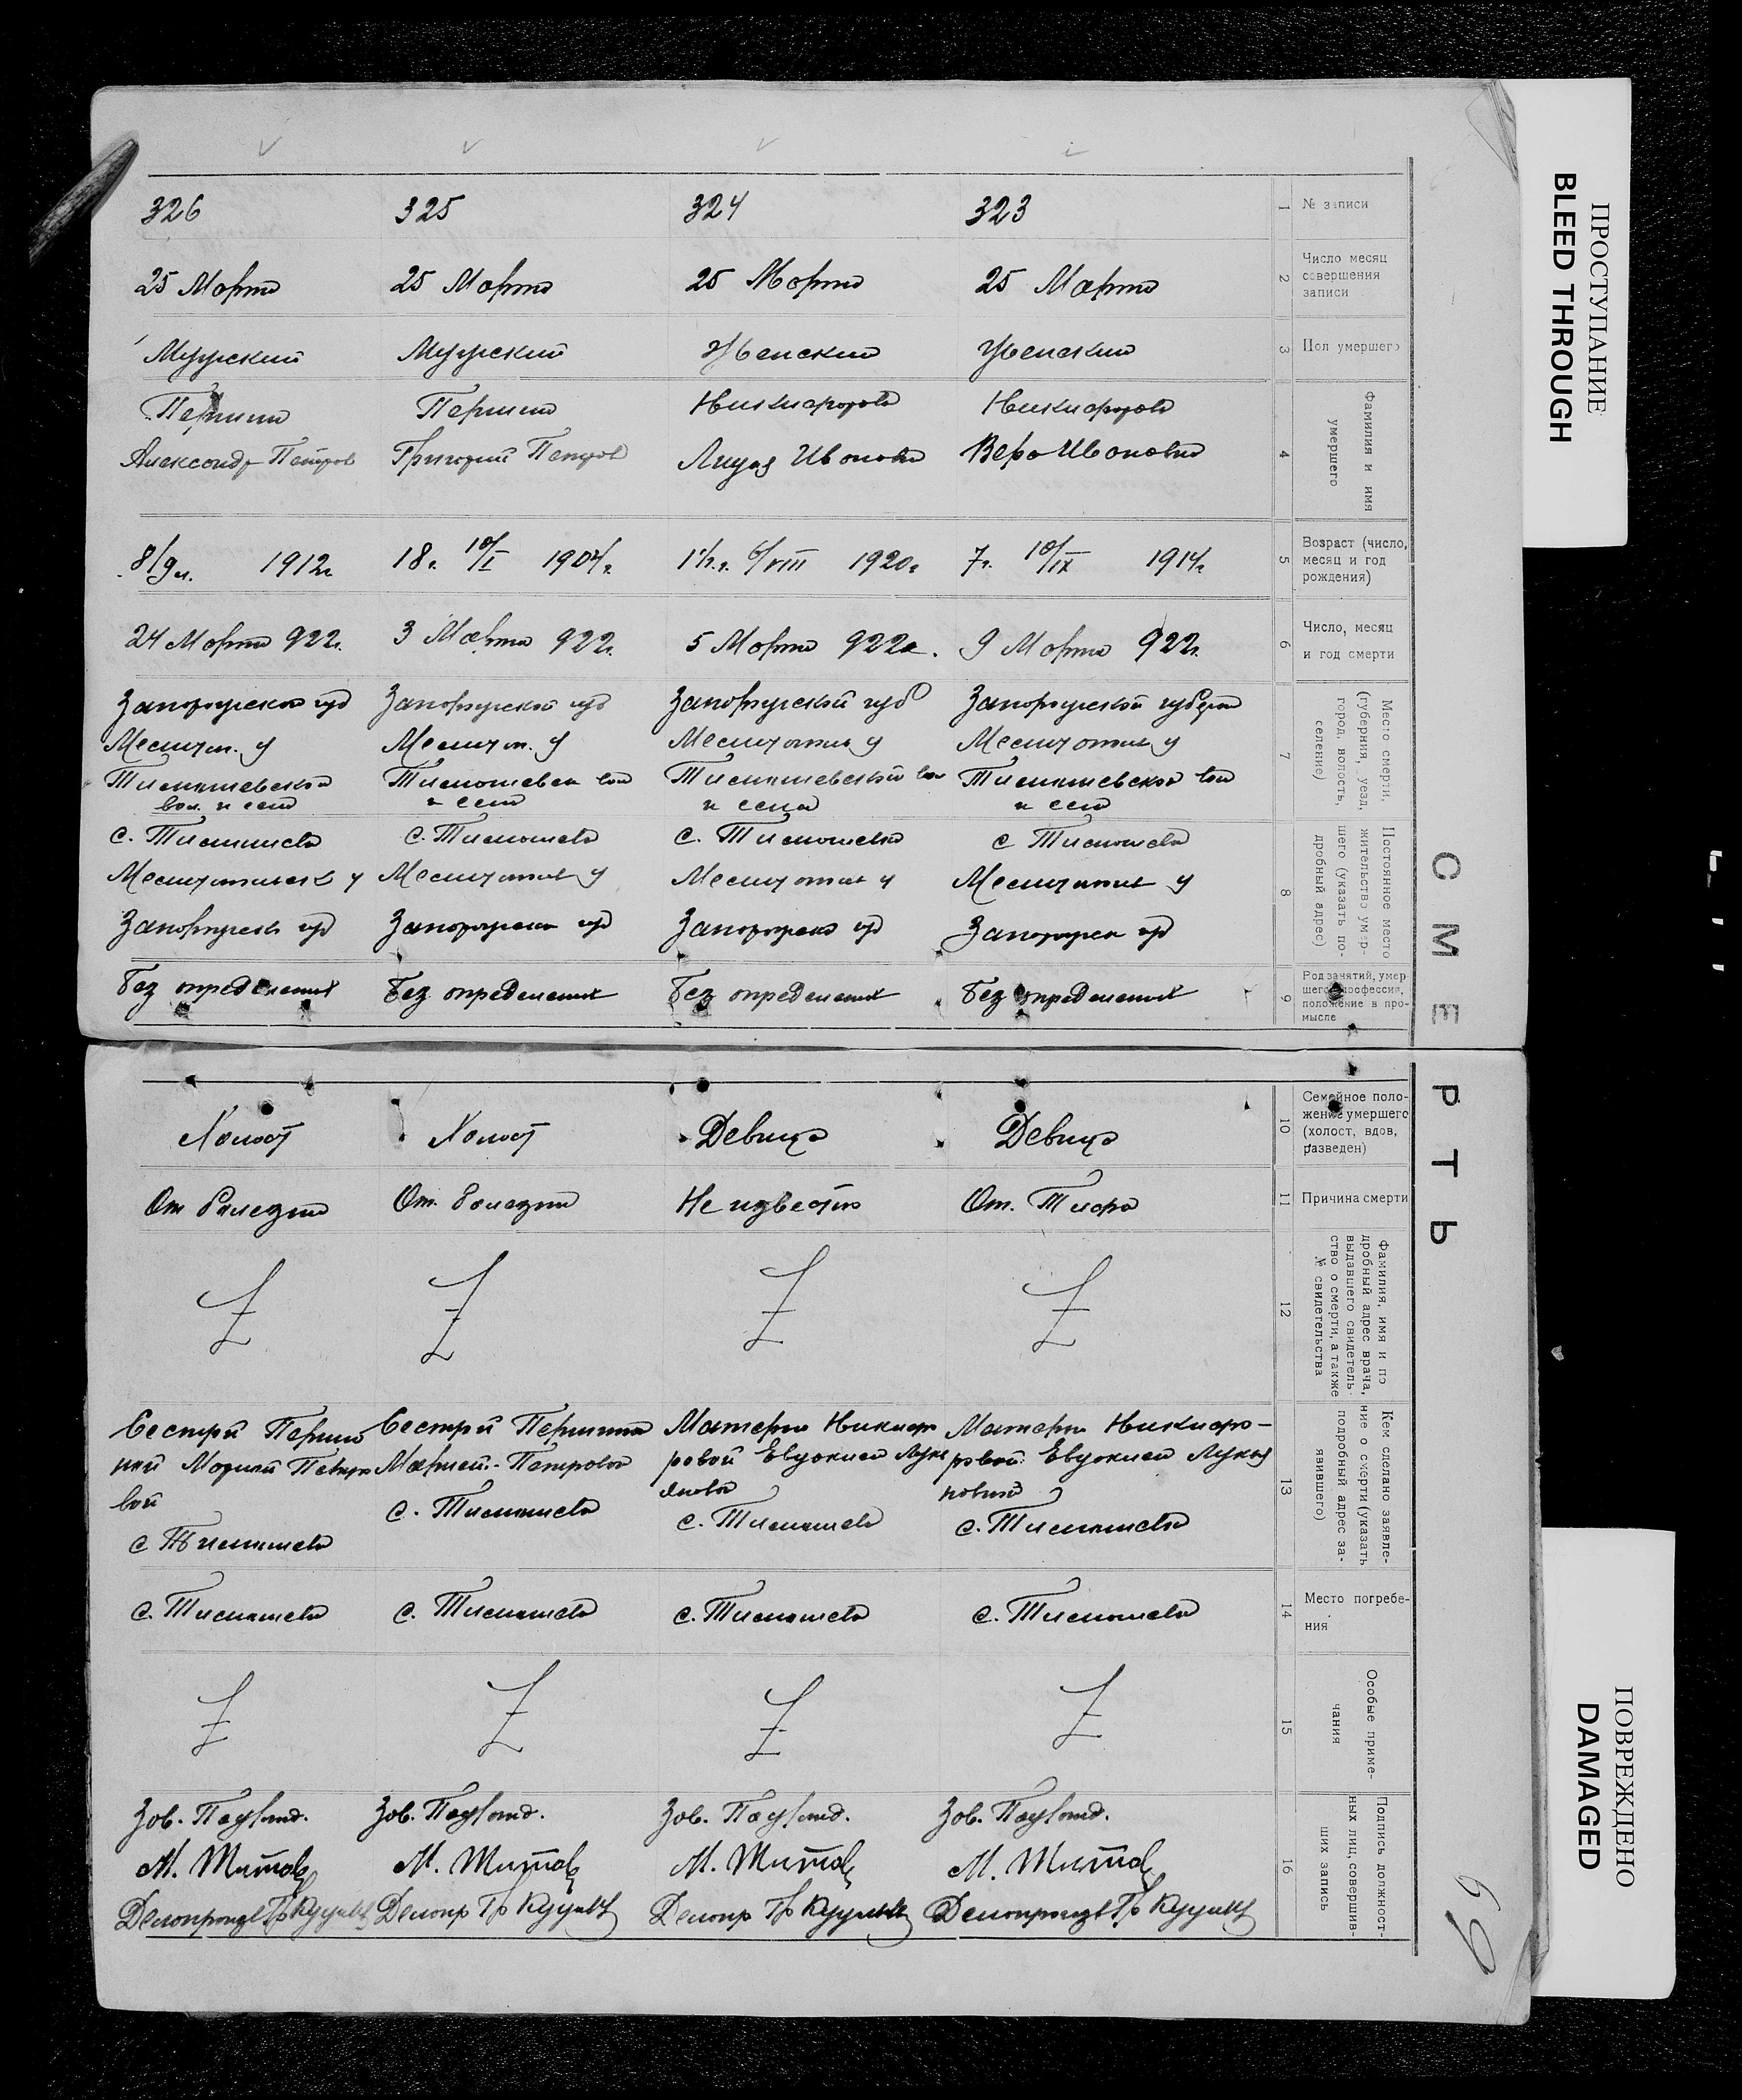 ПРОСТУПАНИЕ
BLEED THROUGH
СМЕРТЬ
1 № записи
323
324
325
326
2 Число месяц
совершения
записи
25 Марта
25 Марта
25 Марта
25 Марта
3 Пол умершего
Женский
Женский
Мужский
Мужский
4 Фамилия и имя
умершего
Никифорова
Вера Ивановна
Никифорова
Лидия Ивановна
Першин
Григорий Петров
Першин
Александр Петров
5 Возраст (число,
месяц и год
рождения)
7 г. 10/IX 1914 г
1 1/2 г. 6/VIII 1920 г
18 г. 10/I 1904 г.
8/9 м. 1912 г
6 Число, месяц
и год смерти
9 Марта 922 г.
5 Марта 922 г.
3 Марта 922 г.
24 Марта 922 г.
7 Место смерти,
(губерния, уезд,
город, волость,
селение)
Запорожской губерн
Мелитопол у
Тимошевской вол
и села
Запорожской губ
Мелитопол у
Тимошевской вол
и села
Запорожской губ
Мелитоп. у
Тимошевск вол
и села
Запорожской губ
Мелитоп. у
Тимошевской
вол. и села
8 Постоянное место
жительство умер-
шего (указать по-
дробный адрес)
с Тимошевка
Мелитопол у
Запорожск губ
с. Тимошевка
Мелитопол у
Запорожск губ
с. Тимошевка
Мелитопол у
Запорожск губ
с. Тимошевка
Мелитопольск у
Запорожск губ
9 Род занятий, умер
шего профессия,
положение в про-
мысле
Без определения
Без определения
Без определения
Без определения
10 Семейное поло-
жение умершего
(холост, вдов,
разведен)
Девица
Девица
Холост
Холост
11 Причина смерти
От. Тифа
Не известно
От. болезни
От болезни
12 Фамилия, имя и по
дробный адрес врача,
выдавшего свидетель-
ство о смерти, а также
№ свидетельства
13 Кем сделано заявле-
ние о смерти (указать
подробный адрес за-
явившего)
Матерью Никифо-
ровой Евдокией Лукья
новна
с. Тимошевка
Матерью Никифо
ровой Евдокией Лукь
яновна
с. Тимошевка
Сестрой Першина
Марией Петровой
с. Тимошевка
Сестрой Перши
ной Марией Петро
вой
с Тимошевка
14 Место погребе-
ния
с. Тимошевка
с. Тимошевка
с. Тимошевка
с. Тимошевка
15 Особые приме-
чания
16 Подпись должност-
ных лиц, совершив-
ших запись
Зав. Подотд.
М. Титов
Зав. Подотд.
М. Титов
Зав. Подотд.
М. Титов
Зав. Подотд.
М. Титов
69
ПОВРЕЖДЕНО
DAMAGED